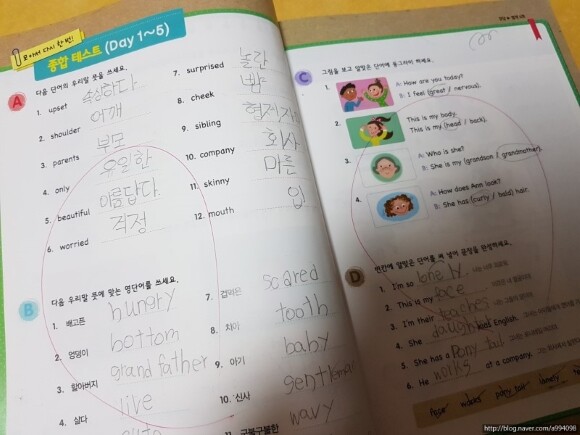 모아서 다시 한 번!
종합 테스트 (Day 1~5)
A 다음 단어의 우리말 뜻을 쓰세요.
1. upset 속상하다
2. shoulder 어깨
3. parents 부모
4. only 유일한
5. beautiful 아름답다
6. worried 걱정
7. surprised 놀란
8. cheek 뺨
9. sibling 형제자매
10. company 회사
11. skinny 마른
12. mouth 입
B 다음 우리말 뜻에 맞는 영단어를 쓰세요.
1. 배고픈 hungry
2. 엉덩이 bottom
3. 할아버지 grand father
4. 살다 live
7. 겁먹은 scared
8. 치아 tooth
9. 아기 baby
10. 신사 gentleman
11. 구불구불한 wavy
C 그림을 보고 알맞은 단어에 동그라미 하세요.
1. A: How are you today?
B: I feel (great / nervous).
2. This is my body.
This is my (head / back).
3. A: Who is she?
B: She is my (grandson / grandmother).
4. A: How does Ann look?
B: She has (curly / bald) hair.
D 빈칸에 알맞은 단어를 써 넣어 문장을 완성하세요.
1. I'm so lonely
2. This is my face
3. I'm their teacher
4. She English.
5. She has a Pony tail
6. He works at a company.
face works pony tail lonely
http://blog.naver.com/a994098